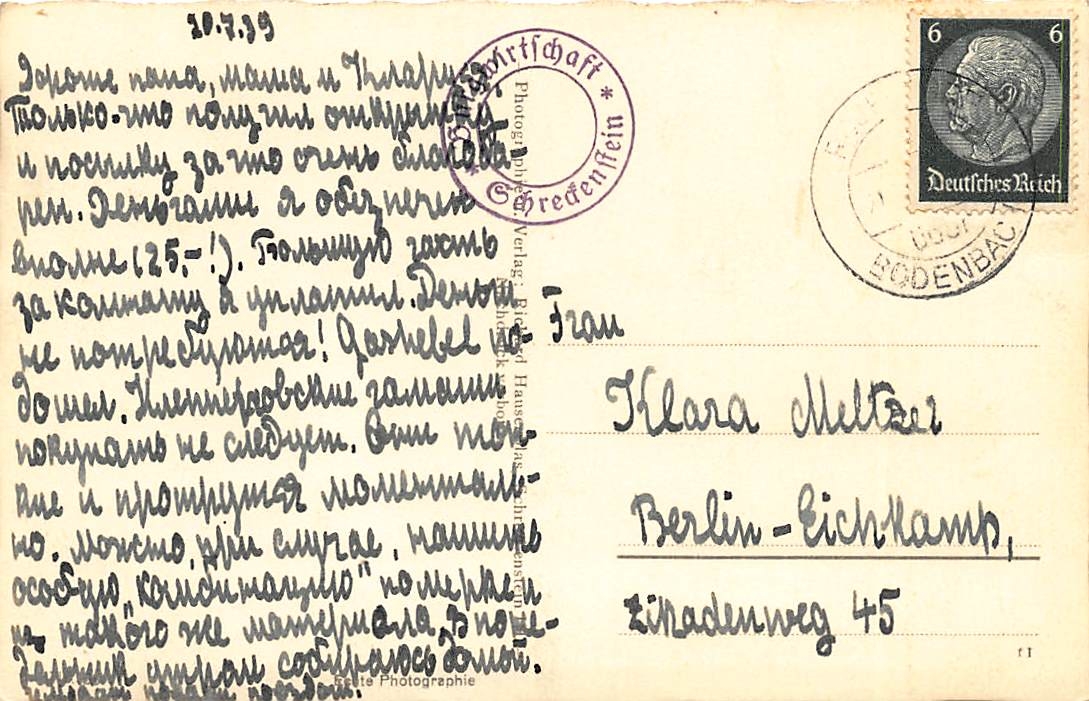 20.7.39
Дорогие папа, мама и Клара!
Только-что получил открытку
и посылку за что очень благода-
рен. Деньгами я обезпечен
вполне (25.-!). Большую часть
за комнату я уплатил. Деньги
не потребуются! Gashebel по-
дошел. Клепперовские гамаши
покупать не следует. Они тон-
кие и протрутся моменталь-
но. Можно, при случае, нашить
особую „комбинацию" по мерке и
из такого же материала. В поне-
дельник утром собираюсь домой.
поездом.
Burgwirtschaft * Schreckenstein *
Photographie u. Verlag: Richard Hauser
Echte Photographie
6 6
Deutsches Reich
über
BODENBACH
Frau
Klara Meltzer
Berlin-Eichkamp,
Zikadenweg 45